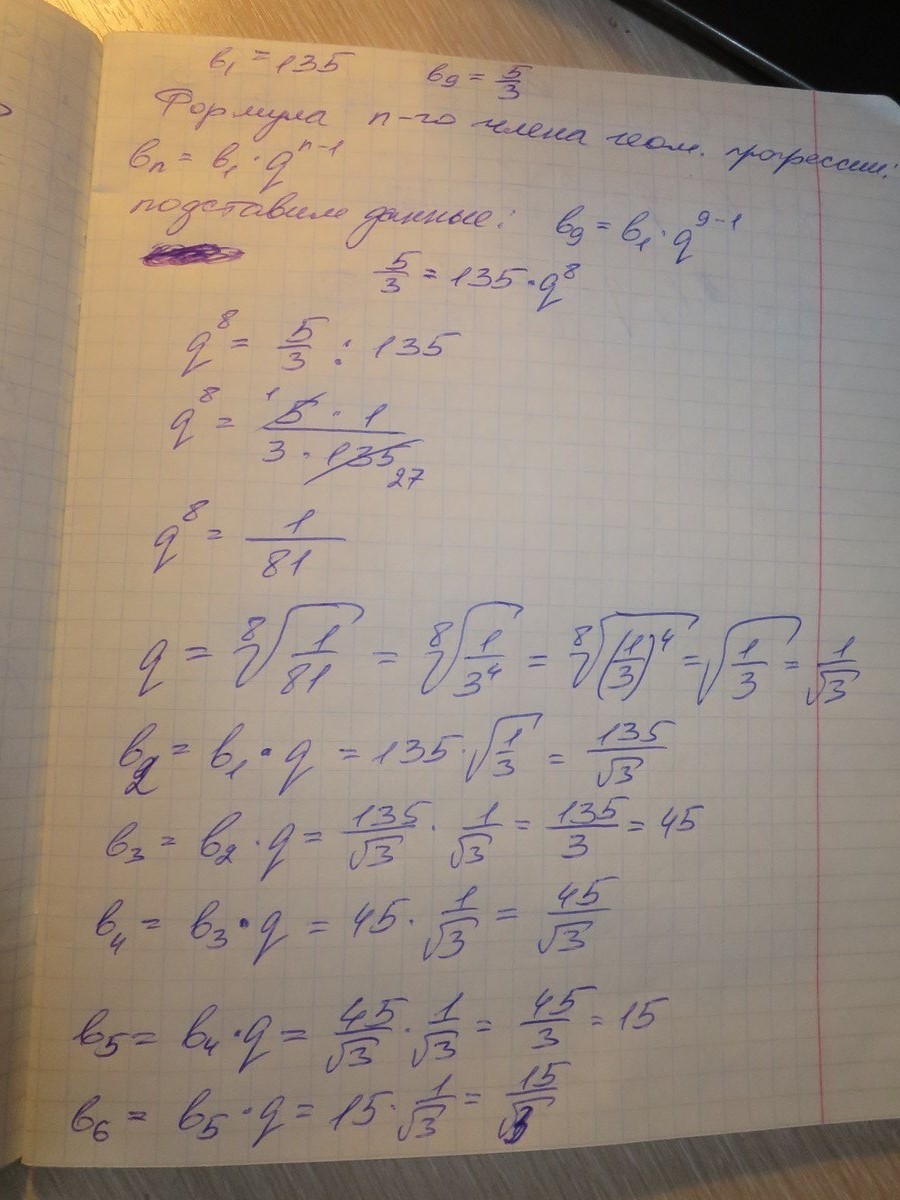 b₁ = 135 b₉ = 5/3
Формула n-го члена геом. прогрессии:
bₙ = b₁ · qⁿ⁻¹
подставим данные: b₉ = b₁ · q⁹⁻¹
5/3 = 135 · q⁸
q⁸ = 5/3 : 135
q⁸ = (5 · 1)/(3 · 135) 1 27
q⁸ = 1/81
q = ⁸√(1/81) = ⁸√(1/3⁴) = ⁸√((1/3)⁴) = √(1/3) = 1/√3
b₂ = b₁ · q = 135 · √(1/3) = 135/√3
b₃ = b₂ · q = 135/√3 · 1/√3 = 135/3 = 45
b₄ = b₃ · q = 45 · 1/√3 = 45/√3
b₅ = b₄ · q = 45/√3 · 1/√3 = 45/3 = 15
b₆ = b₅ · q = 15 · 1/√3 = 15/√3